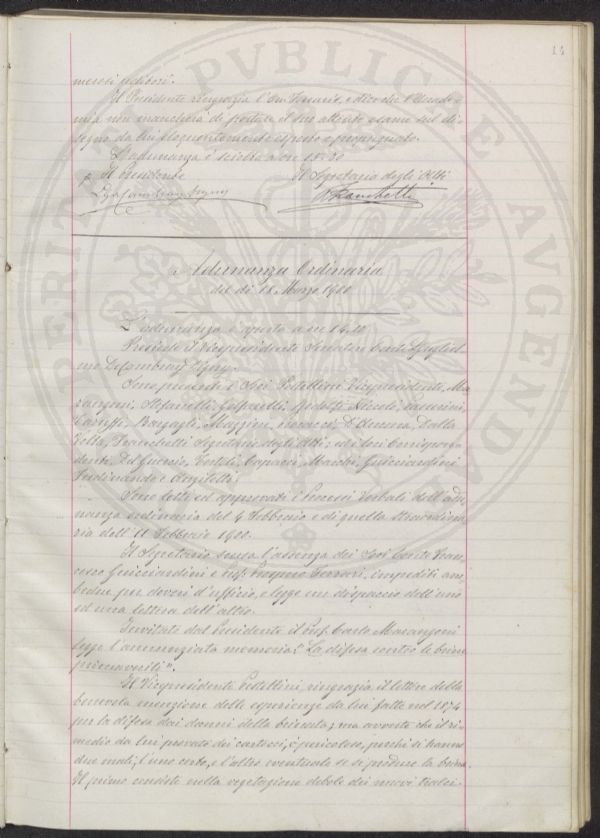 14
merosi uditori.
Il Presidente ringrazia l'On. Ferrario, e dice che l'Accade
mia non mancherà di portare il suo attento esame sul di-
segno da lui eloquentemente esposto e propugnato.
L'adunanza è sciolta a ore 15.30
p Il Presidente Il Segretario degli Atti
Franchetti
Adunanza Ordinaria
del dì 18 Marzo 1900
L'adunanza è aperta a ore 14.10
Presiede il Vicepresidente Senatore Conte Gugliel
mo De Cambray Digny.
Sono presenti i Soci Pestellini Vicepresidente, Ma
rangoni, Stefanelli, Ridolfi, Niccoli,
Caruffi, Bargagli, Mazzini, D'Ancona, Dalla
Volta, Franchetti Segretario degli Atti, ed i Soci Corrispon
denti, Del Guercio, Guicciardini
Ferdinando e
Sono letti ed approvati i Processi Verbali dell'adu
nanza ordinaria del 4 Febbraio e di quella straordina
ria dell'11 Febbraio 1900.
Il Segretario scusa l'assenza dei Soci Conte Fran
cesco Guicciardini e Ferrari, impediti am
bedue per doveri d'ufficio, e legge un dispaccio dell'uno
ed una lettera dell'altro.
Invitato dal Presidente il Prof. Carlo Marangoni
legge l'annunziata memoria: "La difesa contro le brine
primaverili".
Il Vicepresidente Pestellini, ringrazia il lettore della
benevola menzione delle esperienze da lui fatte nel 1874
per la difesa dai danni della brinata; ma avverte che il ri-
medio da lui provato dei cartocci, è pericoloso, perchè si hanno
due mali; l'uno certo, e l'altro eventuale se si produce la brina.
Il primo consiste nella vegetazione debole dei nuovi tralci.
PERITA PVBLICE AVGENDAE